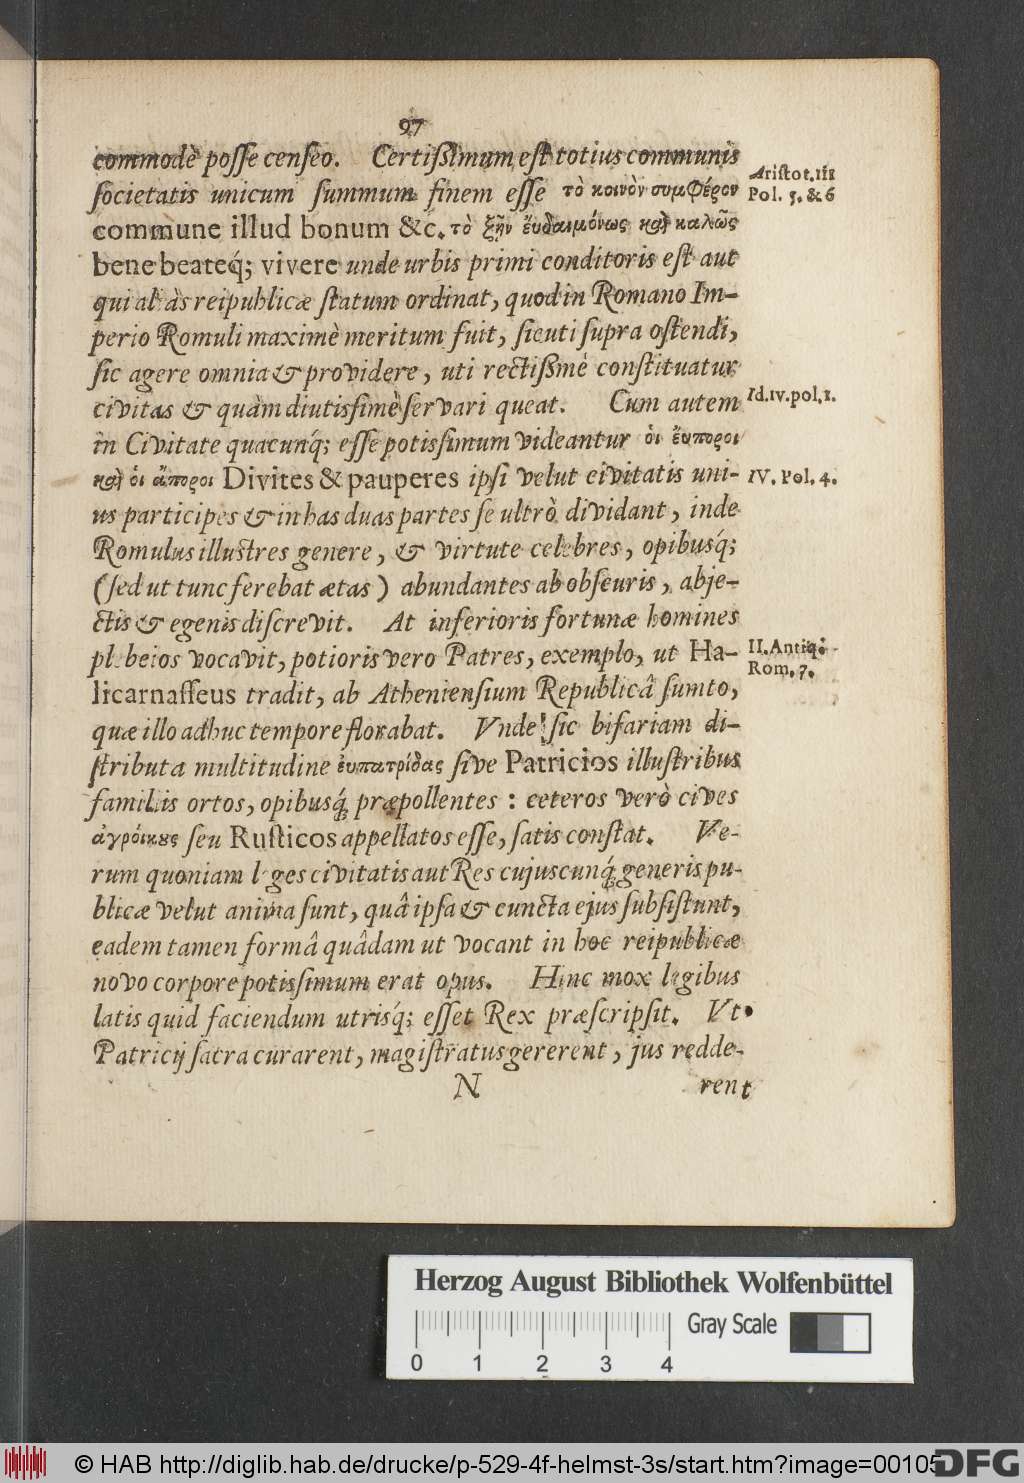 97
commodè posse censeo. Certißimum est totius communis
societatis unicum summum finem esse τὸ κοινὸν συμφέρον
commune illud bonum &c. τὸ ξῆν ἔυδαιμόνως καὶ καλῶς
bene beateq́; vivere unde urbis primi conditoris est aut
qui aliàs reipublicæ statum ordinat, quod in Romano Im-
perio Romuli maximè meritum fuit, sicuti supra ostendi,
sic agere omnia & providere, uti rectißmè constituatur
civitas & quàm diutissimè servari queat. Cum autem
in Civitate quacunq́; esse potissimum videantur ὁι ἔυποροι
καὶ ὁι ἄποροι Divites & pauperes ipsi velut civitatis uni-
us participes & in has duas partes se ultrò dividant, inde
Romulus illustres genere, & virtute celebres, opibusq́;
(sed ut tunc ferebat ætas) abundantes ab obscuris, abje-
ctis & egenis discrevit. At inferioris fortunæ homines
plebeios vocavit, potioris vero Patres, exemplo, ut Ha-
licarnasseus tradit, ab Atheniensium Republicâ sumto,
quæ illo adhuc tempore florabat. Vnde sic bifariam di-
stributa multitudine ἐυπατρίδας sive Patricios illustribus
familiis ortos, opibusq́; præpollentes : ceteros verò cives
ἀγρόικους seu Rusticos appellatos esse, satis constat. Ve-
rum quoniam leges civitatis aut Res cujuscunq́; generis pu-
blicæ velut anima sunt, quâ ipsa & cuncta ejus subsistunt,
eadem tamen formâ quâdam ut vocant in hoc reipublicæ
novo corpore potissimum erat opus. Hinc mox legibus
latis quid faciendum utrisq́; esset Rex præscripsit. Vt
Patricij sacra curarent, magistratus gererent, jus redde-
N rent
Aristot. III
Pol. 5. & 6
Id. IV. pol, 1.
IV. Pol. 4.
II. Antiq;
Rom. 7.
Herzog August Bibliothek Wolfenbüttel
Gray Scale
0 1 2 3 4
© HAB http://diglib.hab.de/drucke/p-529-4f-helmst-3s/start.htm?image=00105
DFG